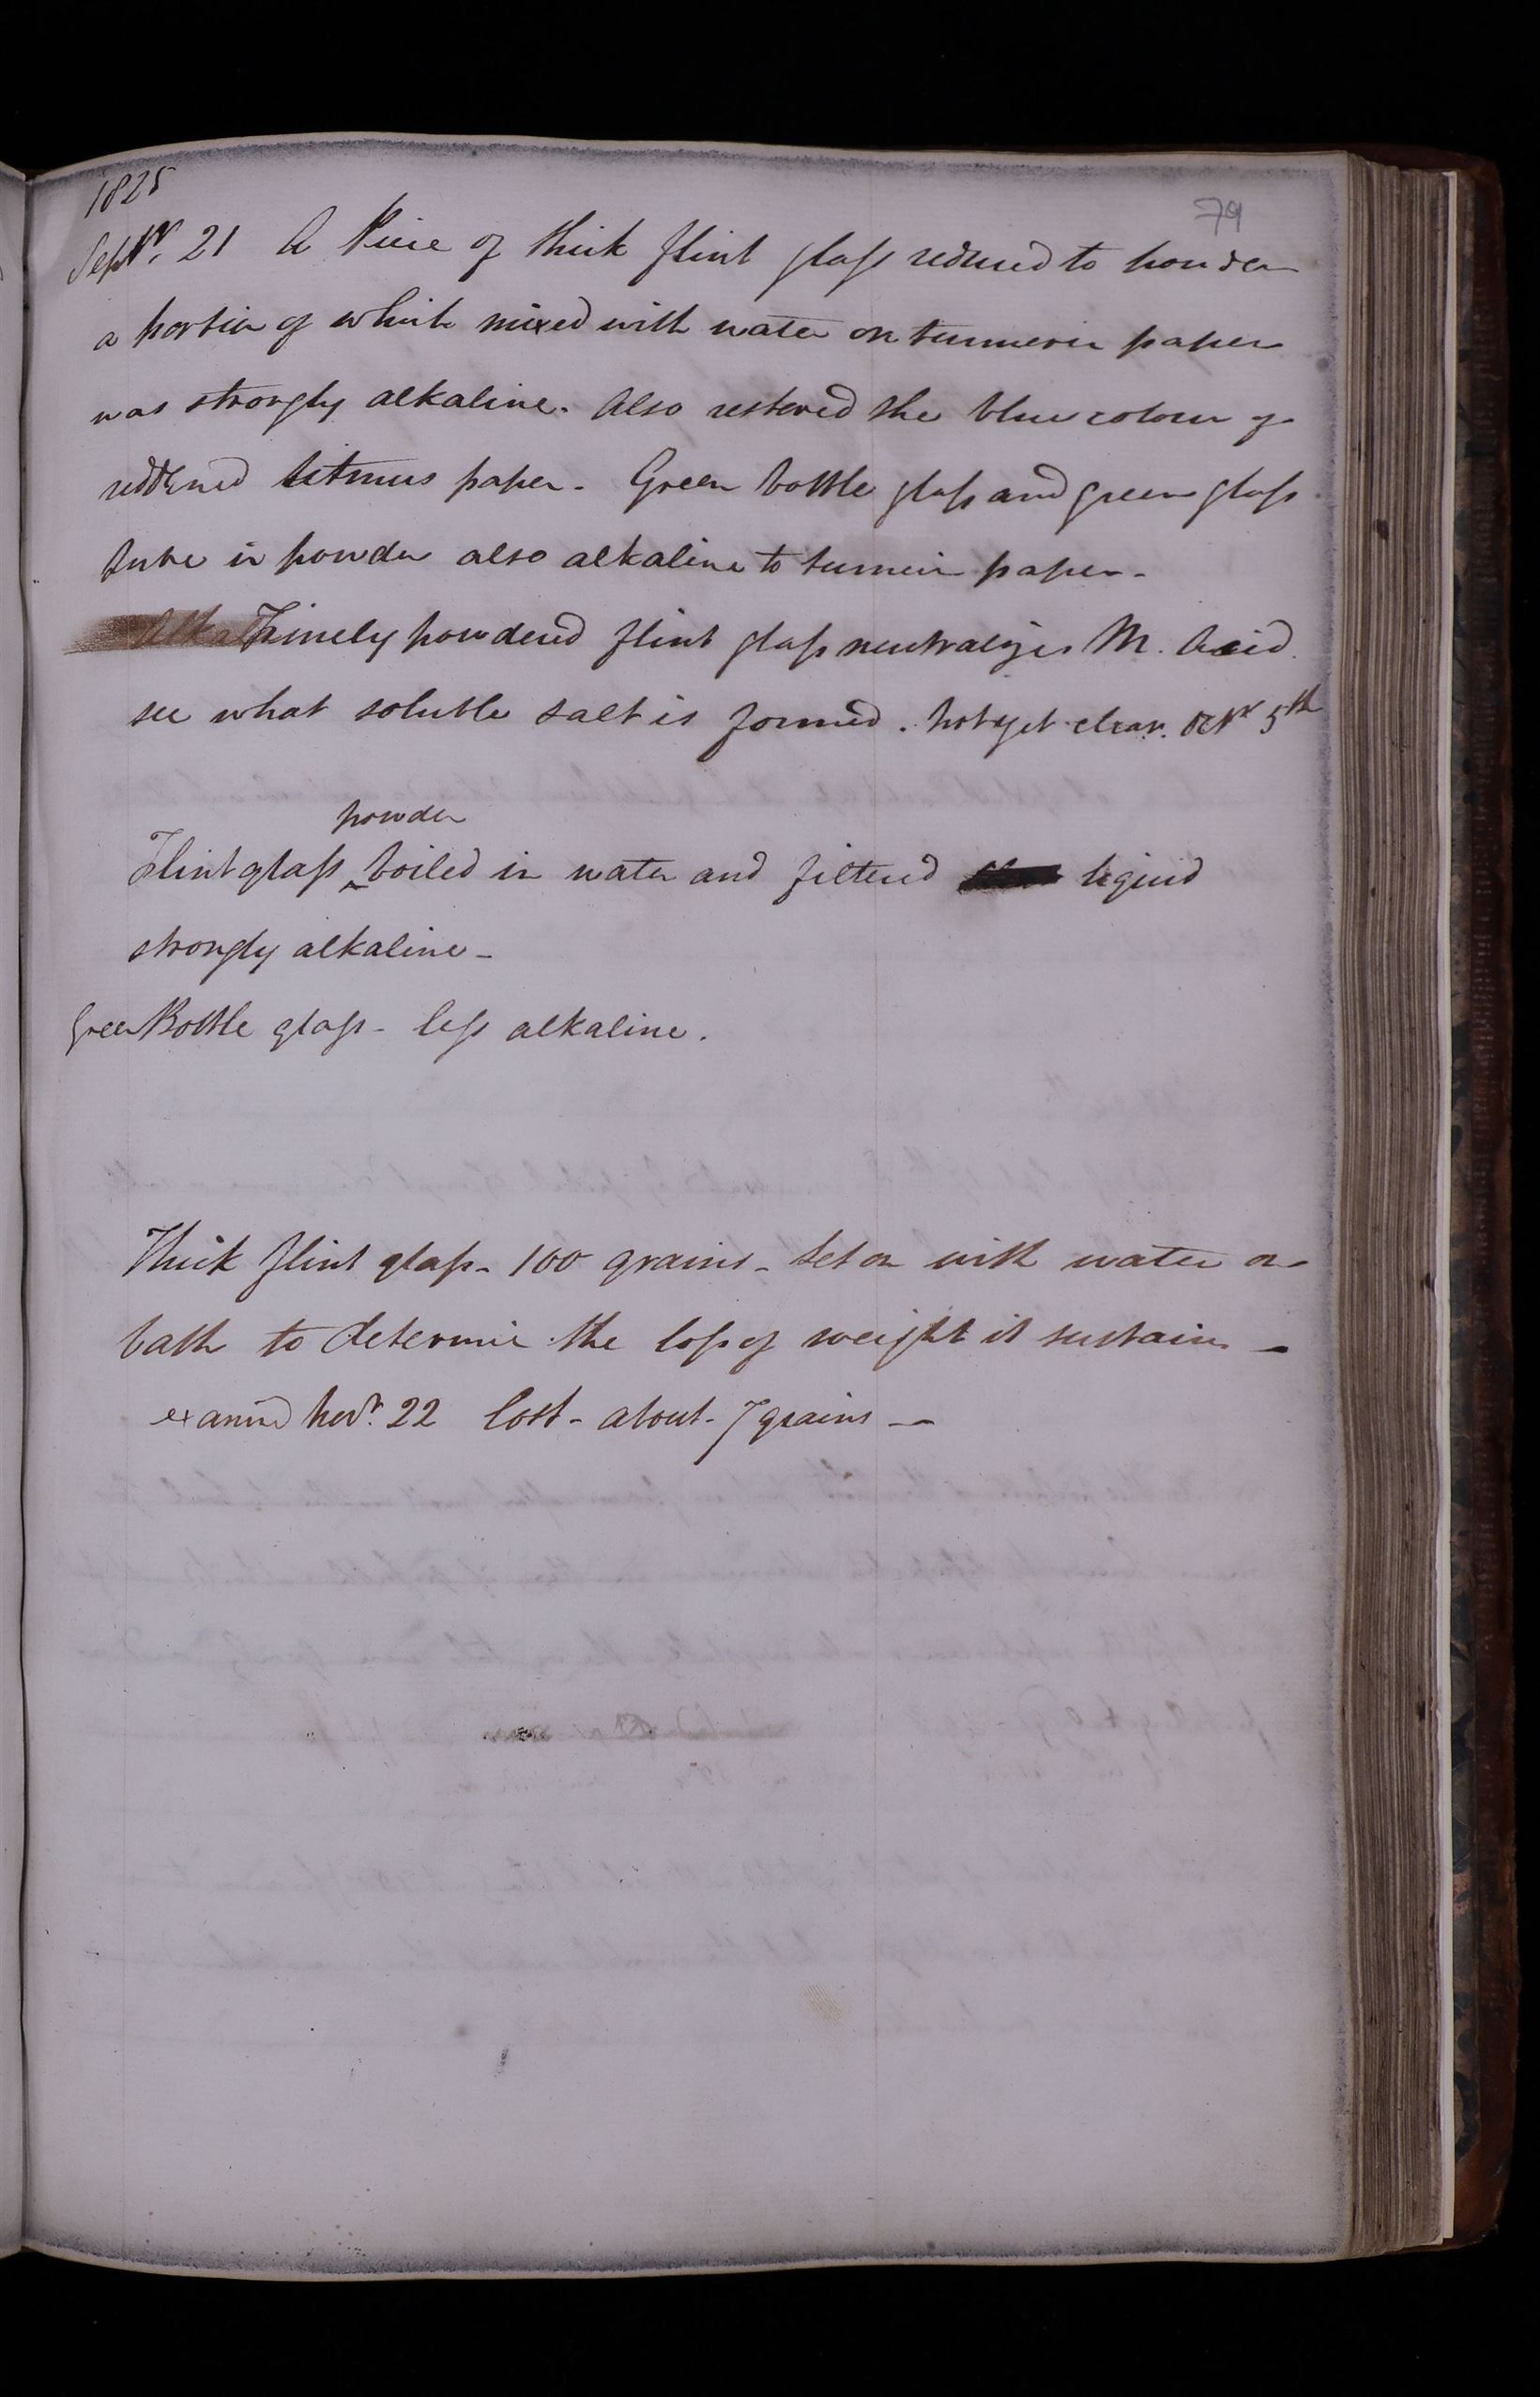 1825
79
Septr. 21 A Piece of thick flint glass reduced to powder
a portion of which mixed with water on turmeric paper
was strongly alkaline. Also restored the blue colour of
reddened litmus paper - Green bottle glass and green glass
tube in powder also alkaline to turmeric paper -
Finely powdered flint glass neutralizes M. Acid.
see what soluble salt is formed. Not yet clear. Octr 5th
powder
Flint glass ^ boiled in water and filtered liquid
strongly alkaline -
Green Bottle glass - less alkaline.
Thick flint glass - 100 grains - set on with water on
bath to determine the loss of weight it sustains -
examd Novr. 22 lost - about - 7 grains -